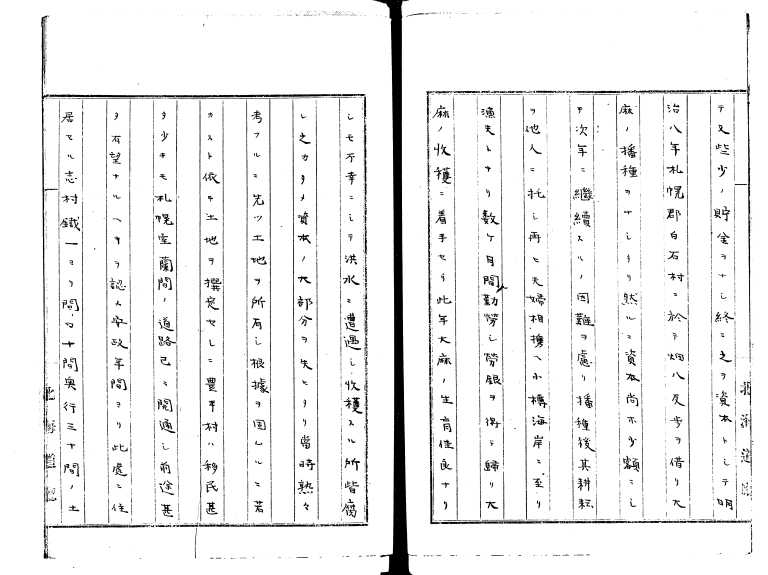 テ又些少ノ貯金ヲナシ終ニ之ヲ資本トシテ明
治八年札幌郡白石村ニ於テ畑八反歩ヲ借リ大
麻ノ播種ヲナシタリ然ルニ資本尚ホ少額ニシ
テ次年ニ継続スルノ困難ヲ慮リ播種後其耕耘
ヲ他人ニ托シ再ヒ夫婦相携ヘ小樽海岸ニ至リ
漁夫トナリ数ケ月間勤労シ労銀ヲ得テ帰リ大
麻ノ収穫ニ着手セリ此年大麻ノ生育佳良ナリ
シモ不幸ニシテ洪水ニ遭遇シ収穫スル所皆腐
レ之カタメ資本ノ大部分ヲ失ヒタリ當時熟々
考フルニ先ツ土地ヲ所有シ根據ヲ固ムルニ若
カスト依テ土地ヲ撰定セシニ豊平村ハ移民甚
タ少キモ札幌室蘭間ノ道路已ニ開通シ前途甚
タ有望ナルヘキヲ認メ安政年間ヨリ此處ニ住
居セル志村鐵一ヨリ間口十間奥行三十間ノ土
北海道廳
北海道廳